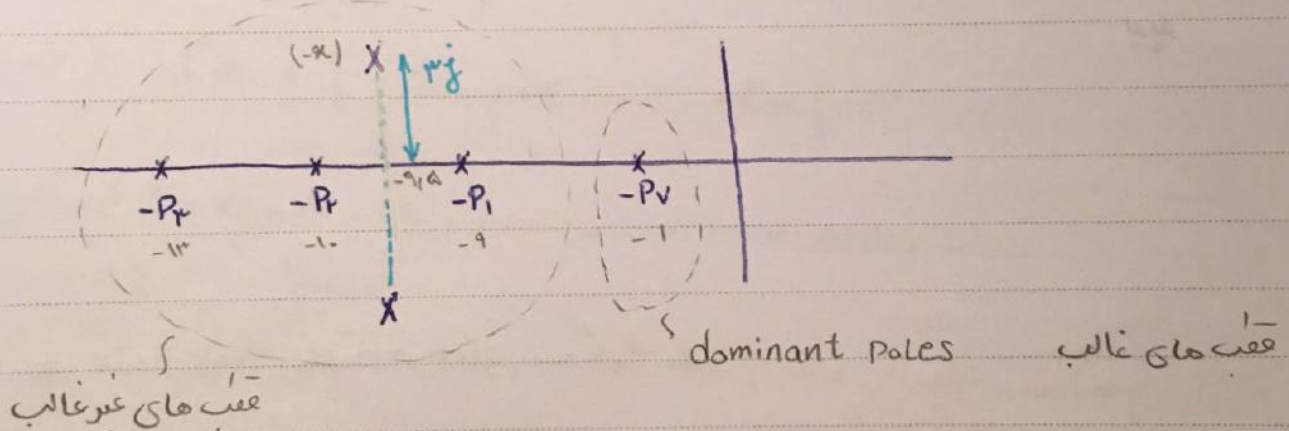 (-x) ۳j
-۹,۵
-P۳ -P۲ -P۱ -P۷
-۱۳ -۱۰ -۹ -۱
dominant poles قطب های غالب
قطب های غیر غالب